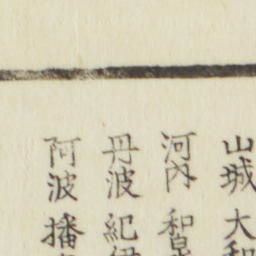 山城 大和
河内 和泉
丹波 紀伊
阿波 播